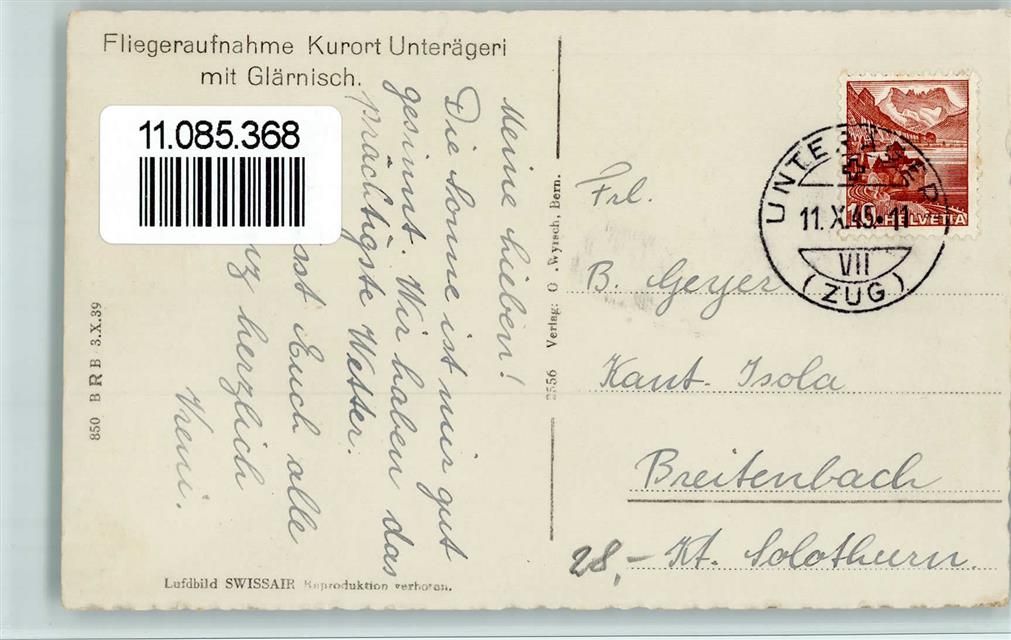 Fliegeraufnahme Kurort Unterägeri
mit Glärnisch.
11.085.368
Meine lieben!
Die Sonne ist mir gut
gesinnt. Wir haben das
prächtigste Wetter.
Euch alle
herzlich
Vreni.
850 B R B 3.X.39
Luftbild SWISSAIR Reproduktion verboten.
2556 Verlag: O. Wyrsch, Bern.
HELVETIA
UNTERÄGERI
11.X.45.-11
VII
(ZUG)
Frl.
B. Geyer
Kant. Isola
Breitenbach
Kt. Solothurn.
28,-